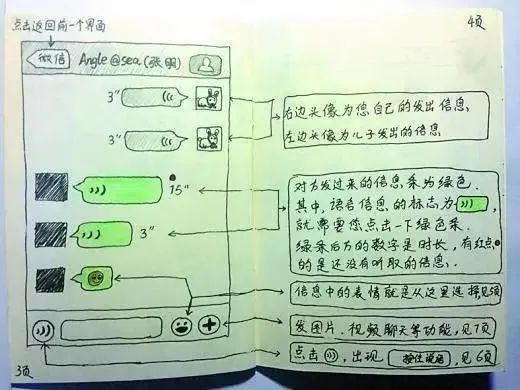 点击返回前一个界面
4页
微信 Angle@sea(张明)
3"
3"
右边头像为您自己的发出信息,
左边头像为儿子发出的信息
15"
3"
对方发过来的信息条为绿色.
其中,语音信息的标志为
就需要您点击一下绿色条.
绿条后方的数字是时长,有红点
的是还没有听取的信息.
信息中的表情就是从这里选择见5页
发图片、视频聊天等功能,见7页
点击 ,出现 按住说话 ,见6页
3页